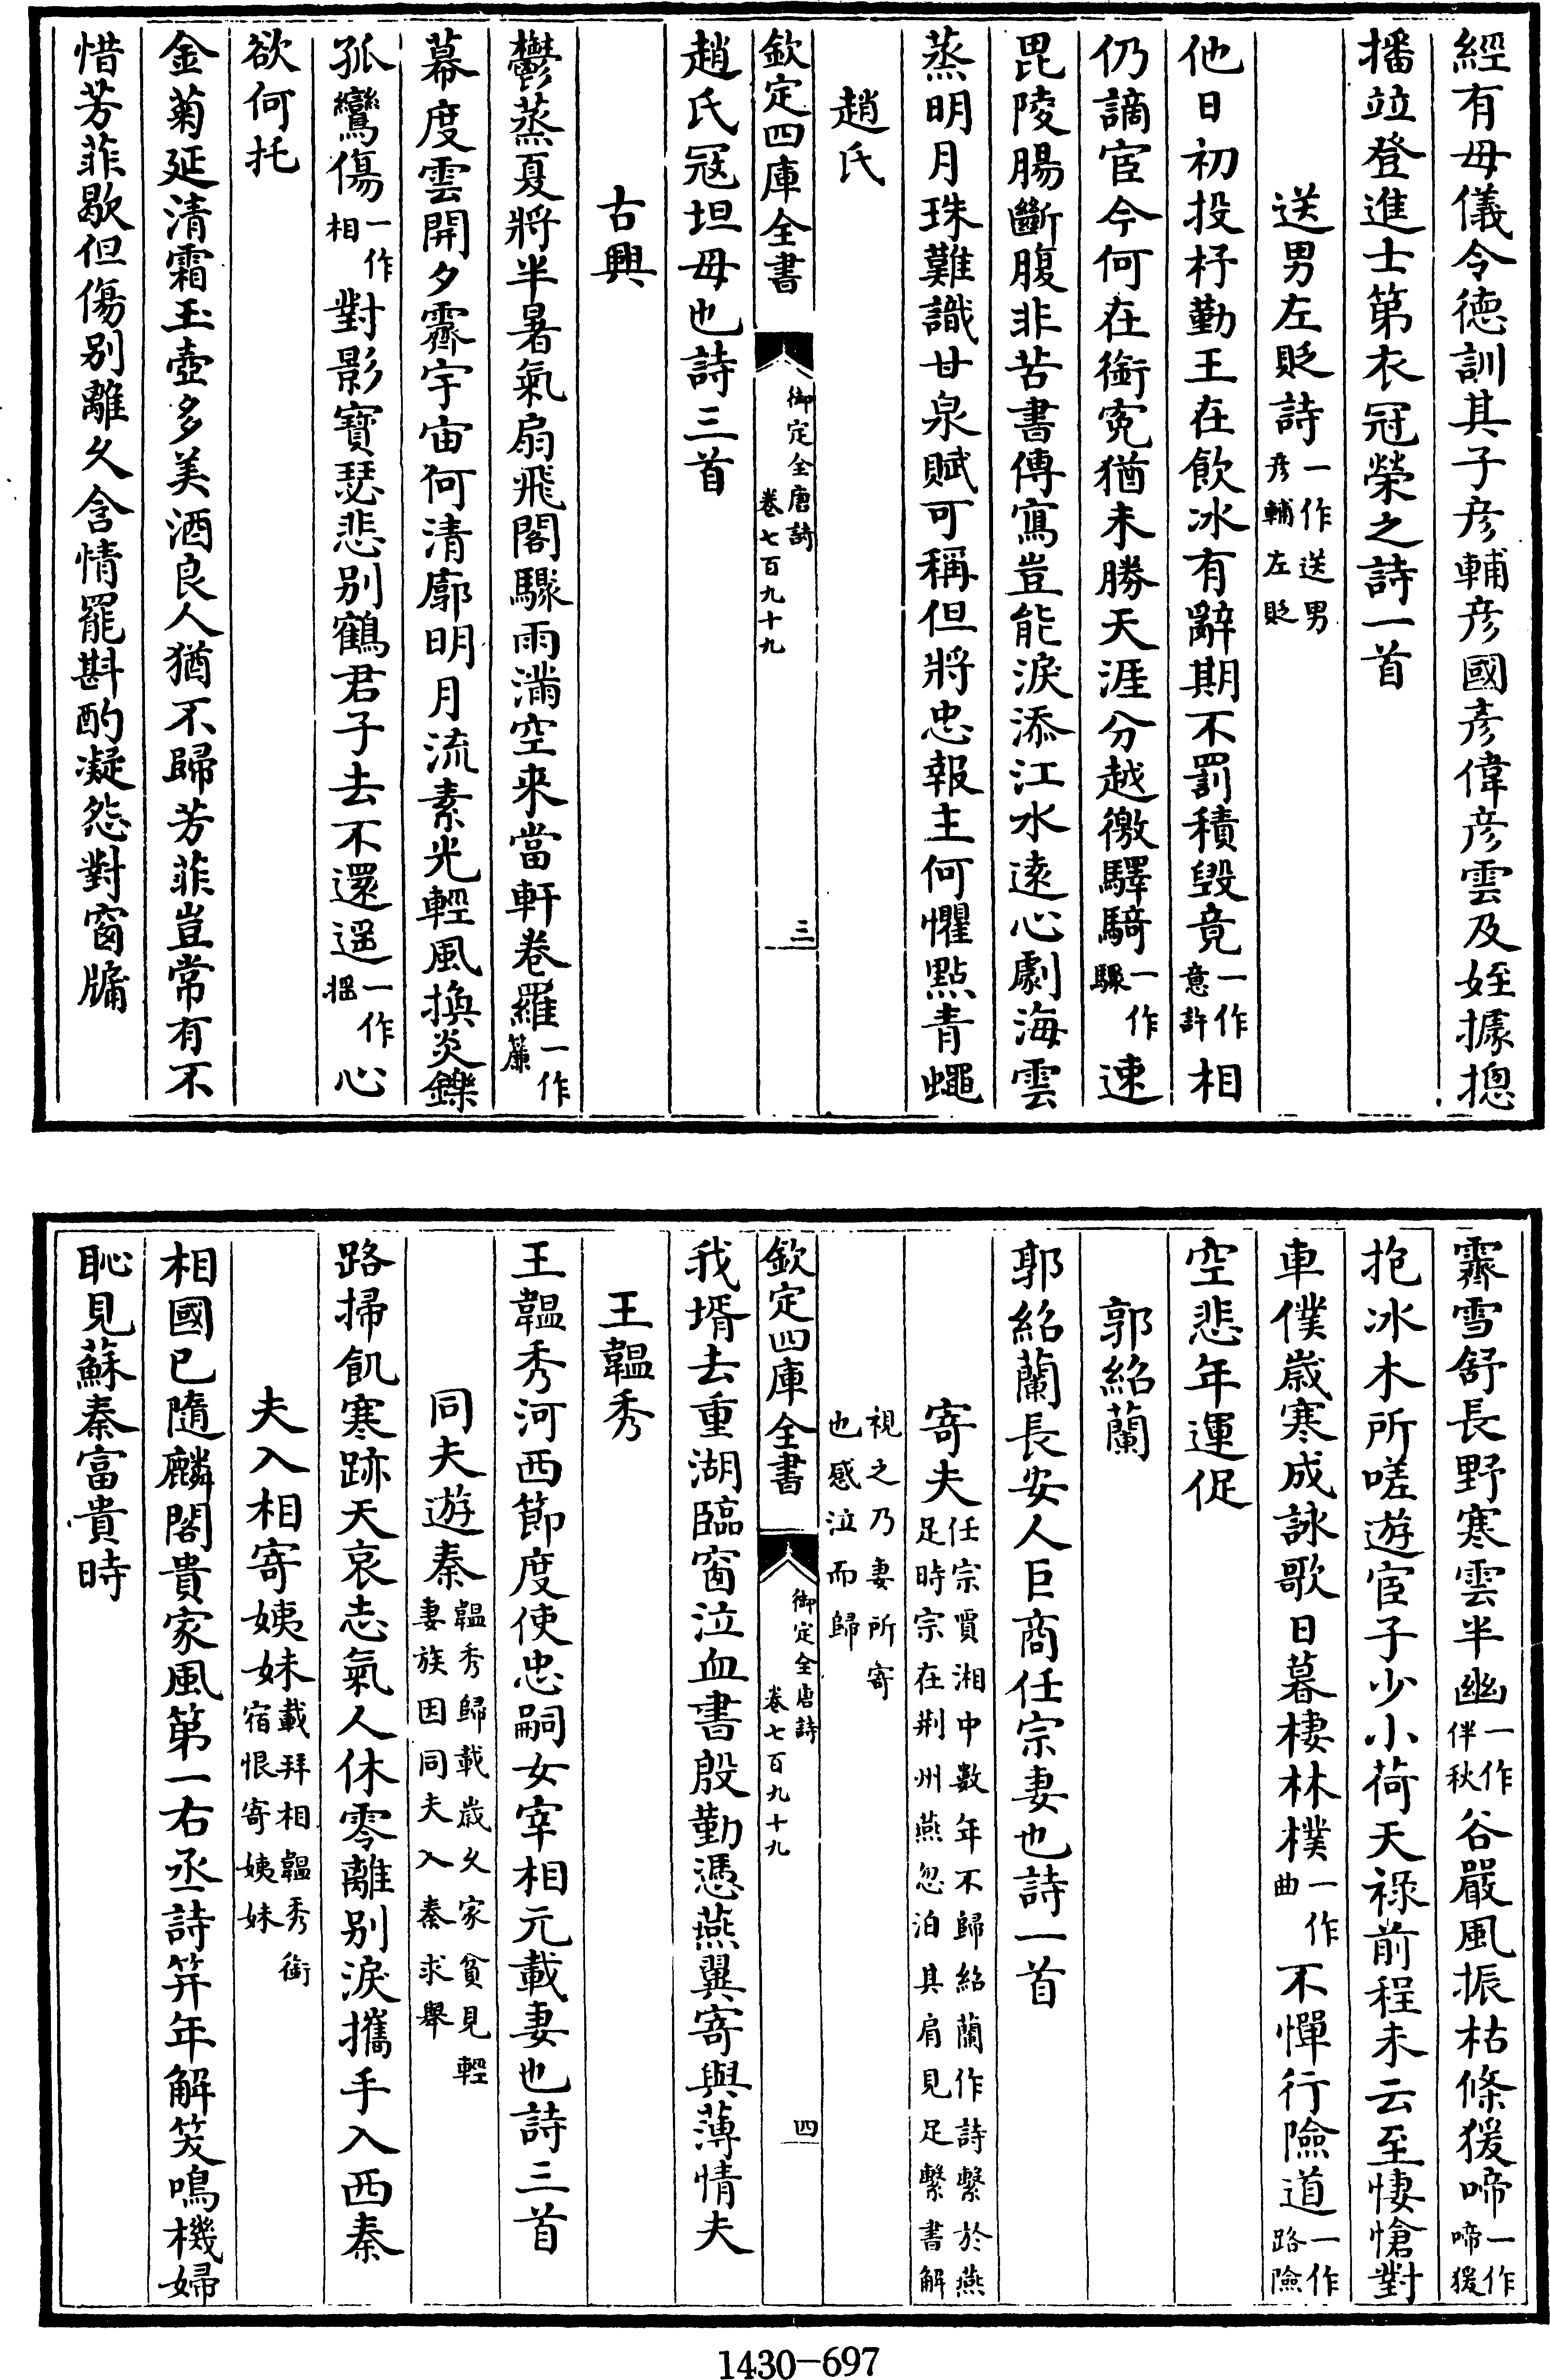 經有母儀令徳訓其子彦輔彦國彦偉彦雲及姪據摠
播竝登進士第衣冠榮之詩一首
送男左貶詩一作送男彦輔左貶
他日初投杼勤王在飲冰有辭期不罰積毁竟一作意許相
仍謫宦今何在銜寃猶未勝天涯分越徼驛騎一作驟速
毘陵腸斷腹非苦書傳寫豈能淚添江水遠心劇海雲
蒸明月珠難識甘泉賦可稱但將忠報主何懼㸃青蠅
趙氏
欽定四庫全書
御定全唐詩
卷七百九十九
三
趙氏冦坦母也詩三首
古興
鬱蒸夏將半暑氣扇飛閣驟雨滿空來當軒巻羅一作簾
幕度雲開夕霽宇宙何清廓明月流素光輕風換炎鑠
孤鸞傷一作相對影寶瑟悲别鶴君子去不還遥一作摇心
欲何托
金菊延清霜玉壺多美酒良人猶不歸芳菲豈常有不
惜芳菲歇但傷别離久含情罷斟酌凝怨對窗牖
霽雪舒長野寒雲半幽一作伴秋谷嚴風振枯條猨啼一作啼猨
抱冰木所嗟遊宦子少小荷天禄前程未云至悽愴對
車僕嵗寒成詠歌日暮棲林樸一作曲不憚行險道一作路險
空悲年運促
郭紹蘭
郭紹蘭長安人巨商任宗妻也詩一首
寄夫任宗賈湘中數年不歸紹蘭作詩繫於燕足時宗在荆州燕忽泊其肩見足繫書解
視之乃妻所寄也感泣而歸
欽定四庫全書
御定全唐詩
卷七百九十九
四
我壻去重湖臨窗泣血書殷勤憑燕翼寄與薄情夫
王韞秀
王韞秀河西節度使忠嗣女宰相元載妻也詩三首
同夫遊秦韞秀歸載嵗久家貧見輕妻族因同夫入秦求舉
路掃飢寒跡天哀志氣人休零離别淚攜手入西秦
夫入相寄姨妹載拜相韞秀銜宿恨寄姨妹
相國已隨麟閣貴家風第一右丞詩筓年解笑鳴機婦
恥見蘇秦富貴時
1430-697